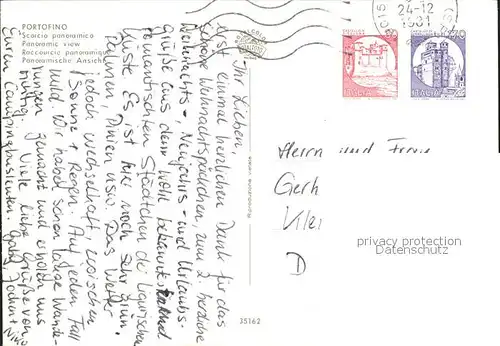 PORTOFINO
Scorcio panoramico
Panoramic view
Raccourci panoramique
Panoramische Ansicht
Ihr Lieben,
erst einmal herzlichen Dank für das
schöne Weihnachtspäckchen, zum 2. herzliche
Weihnachts-, Neujahrs- und Urlaubs-
grüße aus dem wohl bekannt
romantischsten Städtchen der ligurischen
Küste. Es ist hier noch sehr grün,
Palmen, Pinien usw. Das Wetter
jedoch wechselhaft, zwischen
Sonne + Regen. Auf jeden Fall
mild. Wir haben schon lange Wande-
rungen gemacht und erholen uns
richtig. Viele liebe Grüße von
Euren Campingbusleuten. Jochen +
35162
24-12
1981
ITALIA
ITALIA
Herrn und Frau
Gerh
D
privacy protection
Datenschutz